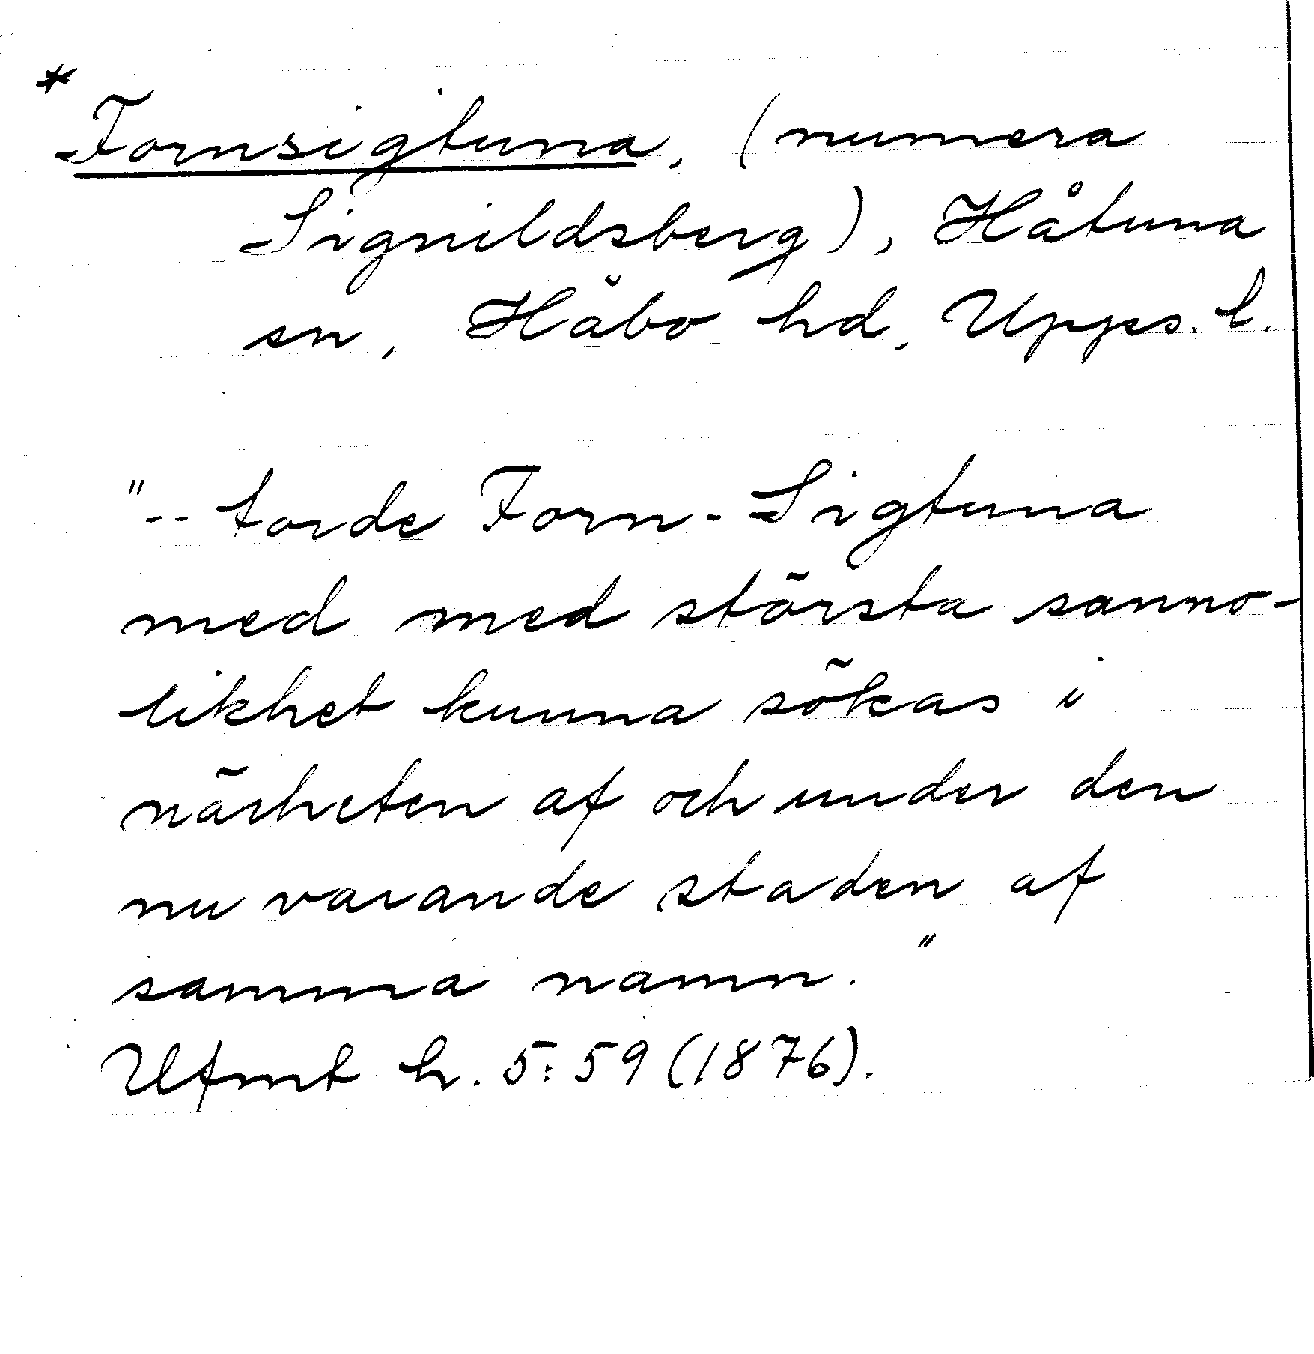 * Fornsigtuna, (numera
Signildsberg), Håtuna
sn, Håbo hd, Upps. l.
"-- torde Forn-Sigtuna
med med största sanno-
likhet kunna sökas i
närheten af och under den
nu varande staden af
samma namn."
Ufmt h. 5:59 (1876).